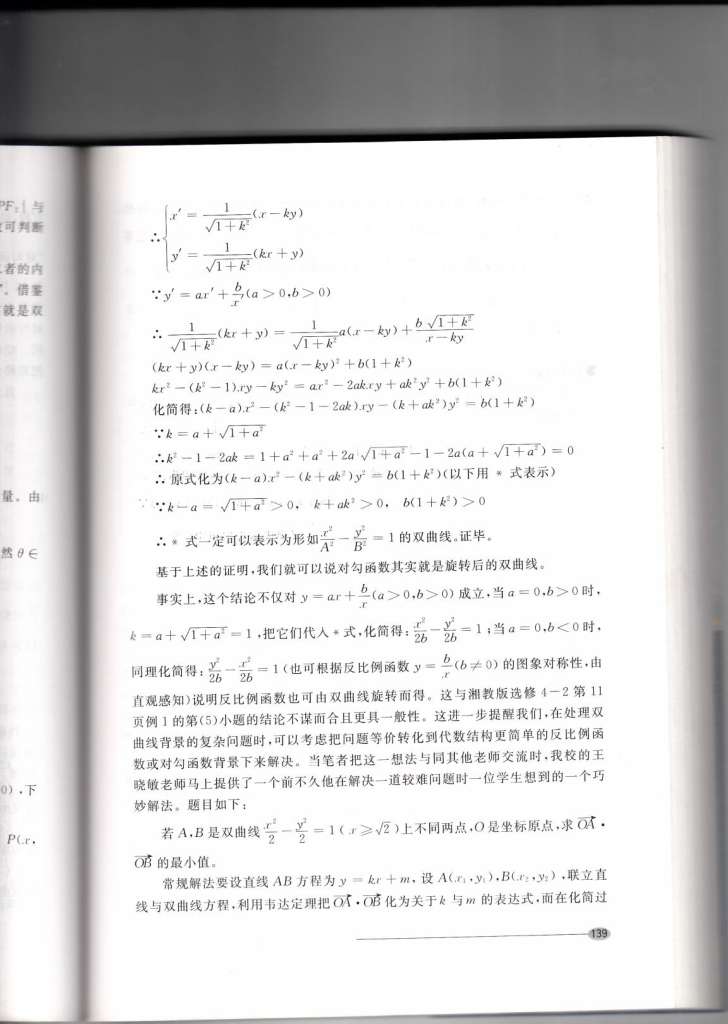 PF₂| 与
可判断
者的内
”。借鉴
就是双
量。由
然 θ∈
0),下
P(x,
∴{x′ = 1/√(1+k²) (x − ky)
y′ = 1/√(1+k²) (kx + y)
∵y′ = ax′ + b/x′ (a > 0,b > 0)
∴ 1/√(1+k²) (kx + y) = 1/√(1+k²) a(x − ky) + b√(1+k²)/(x−ky)
(kx + y)(x − ky) = a(x − ky)² + b(1 + k²)
kx² − (k² − 1)xy − ky² = ax² − 2akxy + ak²y² + b(1 + k²)
化简得:(k − a)x² − (k² − 1 − 2ak)xy − (k + ak²)y² = b(1 + k²)
∵k = a + √(1 + a²)
∴k² − 1 − 2ak = 1 + a² + a² + 2a√(1 + a²) − 1 − 2a(a + √(1 + a²)) = 0
∴ 原式化为(k − a)x² − (k + ak²)y² = b(1 + k²)(以下用 * 式表示)
∵k − a = √(1 + a²) > 0, k + ak² > 0, b(1 + k²) > 0
∴ * 式一定可以表示为形如 x²/A² − y²/B² = 1 的双曲线。证毕。
基于上述的证明,我们就可以说对勾函数其实就是旋转后的双曲线。
事实上,这个结论不仅对 y = ax + b/x (a > 0,b > 0) 成立,当 a = 0,b > 0 时,
k = a + √(1 + a²) = 1,把它们代入 * 式,化简得: x²/2b − y²/2b = 1;当 a = 0,b < 0 时,
同理化简得: y²/2b − x²/2b = 1(也可根据反比例函数 y = b/x (b ≠ 0) 的图象对称性,由
直观感知)说明反比例函数也可由双曲线旋转而得。这与湘教版选修 4－2 第 11
页例 1 的第(5)小题的结论不谋而合且更具一般性。这进一步提醒我们,在处理双
曲线背景的复杂问题时,可以考虑把问题等价转化到代数结构更简单的反比例函
数或对勾函数背景下来解决。当笔者把这一想法与同其他老师交流时,我校的王
晓敏老师马上提供了一个前不久他在解决一道较难问题时一位学生想到的一个巧
妙解法。题目如下:
若 A,B 是双曲线 x²/2 − y²/2 = 1( x ⩾ √2 )上不同两点,O 是坐标原点,求 OA→ ·
OB→ 的最小值。
常规解法要设直线 AB 方程为 y = kx + m, 设 A(x₁,y₁),B(x₂,y₂) ,联立直
线与双曲线方程,利用韦达定理把 OA→ · OB→ 化为关于 k 与 m 的表达式,而在化简过
139